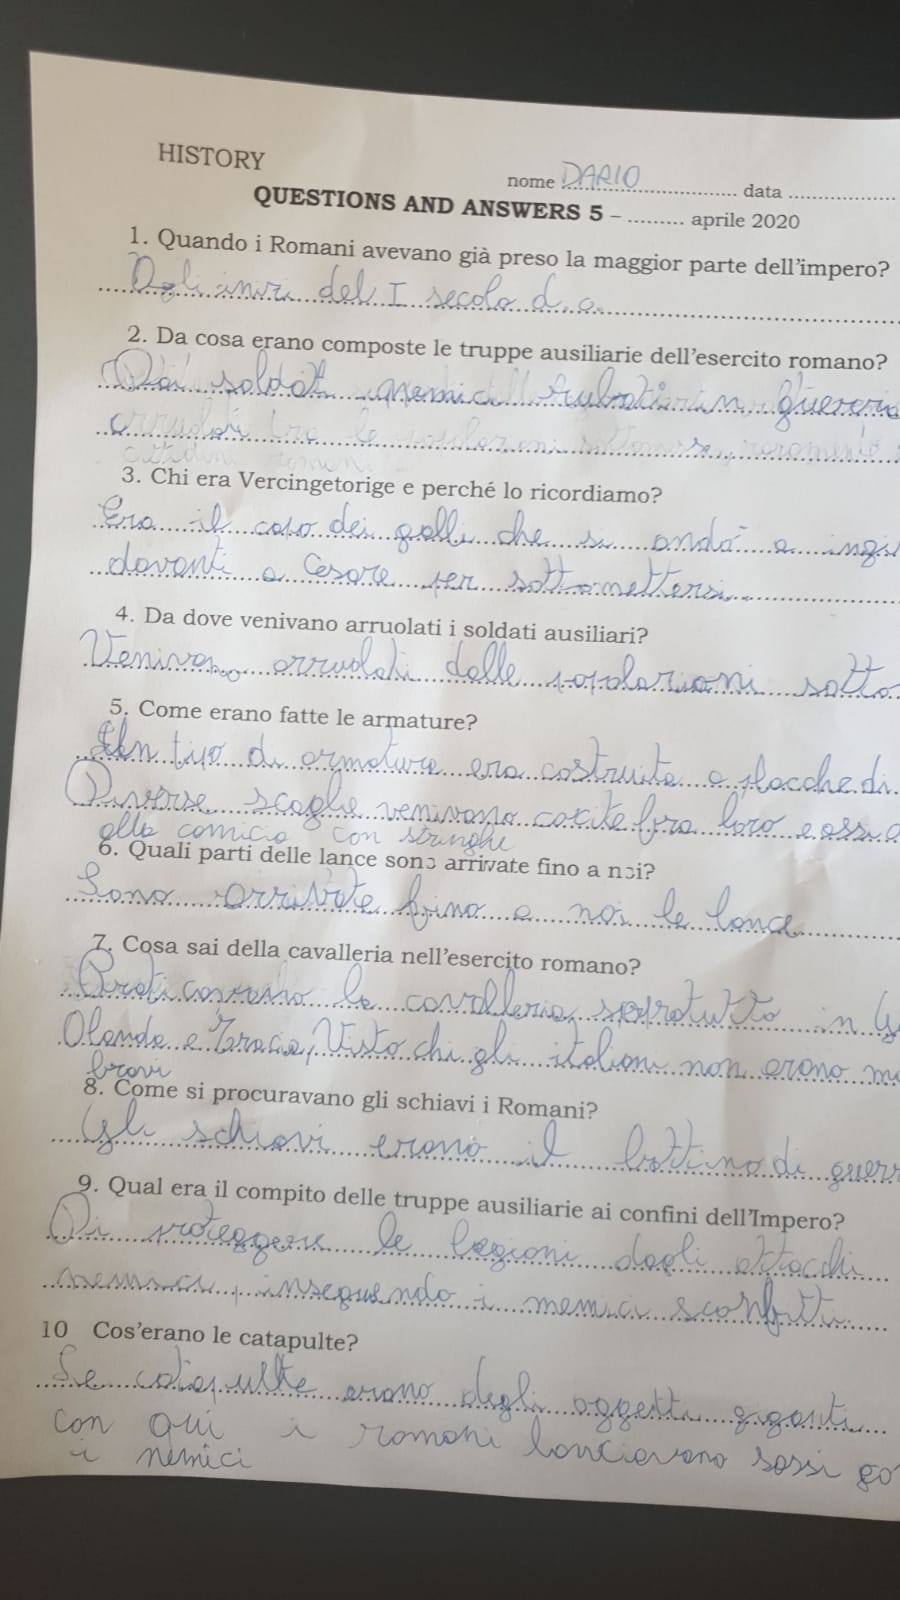 HISTORY
nome DARIO data
QUESTIONS AND ANSWERS 5 – ......... aprile 2020
1. Quando i Romani avevano già preso la maggior parte dell'impero?
del I secolo d. c.
2. Da cosa erano composte le truppe ausiliarie dell'esercito romano?
Dai in
tra le
3. Chi era Vercingetorige e perché lo ricordiamo?
Era il capo dei galli che si andò a
davanti a Cesare per sottomettersi.
4. Da dove venivano arruolati i soldati ausiliari?
Venivano arruolati dalle popolazioni sotto
5. Come erano fatte le armature?
Un tipo di armatura era costruita a placche di
Diverse scaglie venivano cucite fra loro e
alla camicia con stringhe
6. Quali parti delle lance sono arrivate fino a noi?
Sono arrivate fino a noi le lance
7. Cosa sai della cavalleria nell'esercito romano?
la cavalleria, sopratutto in
Olanda e Tracia, Visto chi gli italiani non erano
bravi
8. Come si procuravano gli schiavi i Romani?
Gli schiavi erano il bottino di
9. Qual era il compito delle truppe ausiliarie ai confini dell'Impero?
Di proteggere le legioni dagli attacchi
nemici, inseguendo i nemici sconfitti.
10 Cos'erano le catapulte?
Le catapulte erano degli oggetti giganti
con qui i romani lanciavano sassi
i nemici